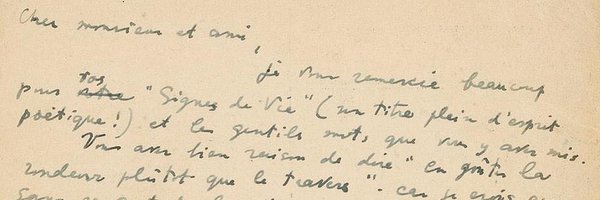 Cher monsieur et ami,
je vous remercie beaucoup
pour vos "Signes de Vie" (un titre plein d'esprit
poètique!) et les gentils mots, que vous y avez mis.
Vous avez bien raison de dire "en goûter la
rondeur plûtot que le travers" - car je crois